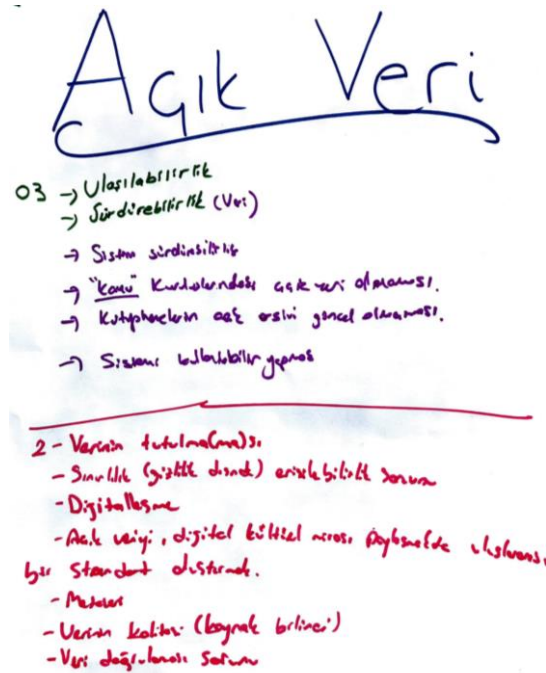 Açık Veri
03 → Ulaşılabilirlik
→ Sürdürebilirlik (Veri)
→ Sistem sürdürebilirlik
→ "kamu" Kurumlarındaki açık veri olmaması.
→ Kütüphanelerin açık arşivi güncel olmaması.
→ Sistemi kullanılabilir yapmak
2 - Verinin tutulma(ma)sı
- Sınırlılık (gizlilik dışında) erişilebilirlik sorunu
- Digitalleşme
- Açık veriyi, digital kültürel mirası paylaşmakta uluslararası
bir standart oluşturmak.
- Metaveri
- Verinin kalitesi (kaynak bilinci)
- Veri doğrulaması sorunu